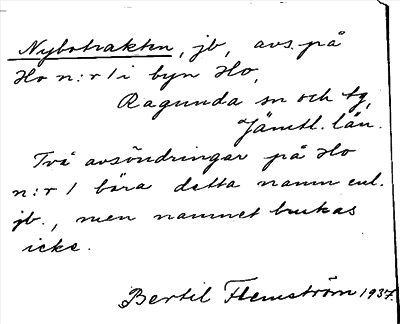 Nybotrakten, jb, avs. på
Ho n:r 1 i byn Ho,
Ragunda sn och tg,
Jämtl. län.
Två avsöndringar på Ho
n:r 1 bära detta namn enl.
jb., men namnet brukas
icke.
Bertil Flemström 1937.